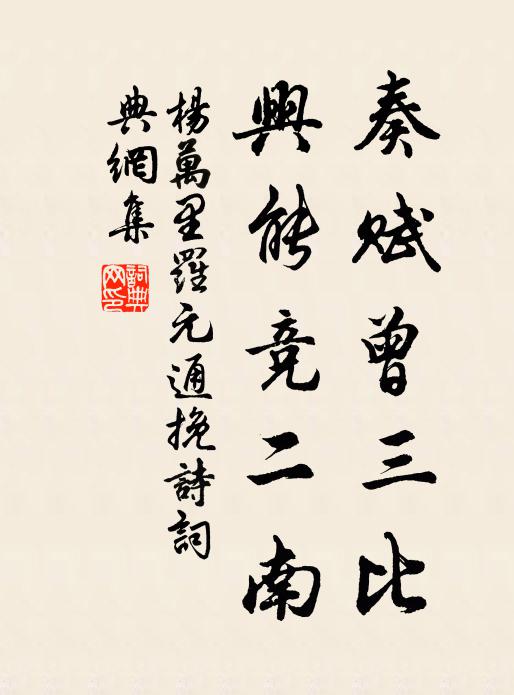 奏賦曾三比
興能竞二南
楊萬里羅元通挽詩詞
典網集
詞典
网印